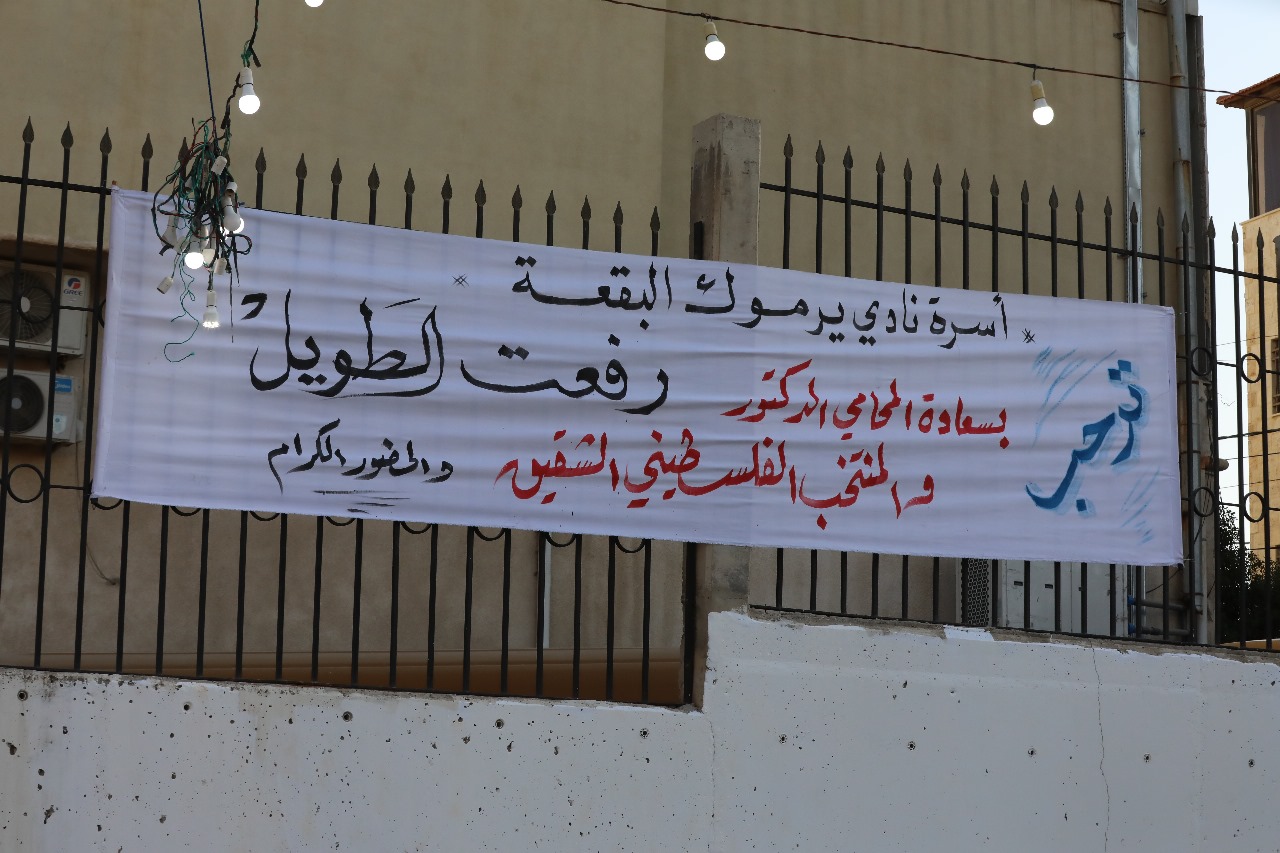 * أسرة نادي يرموك البقعة *
ترحب
بسعادة المحامي الدكتور رفعت الطويل
والمنتخب الفلسطيني الشقيق والحضور الكرام
GREE